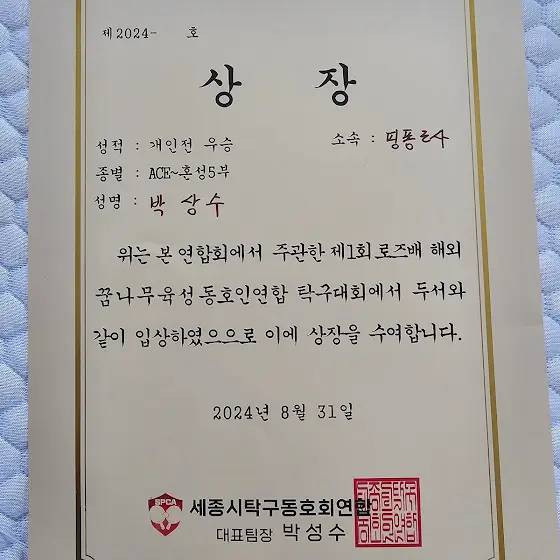 제2024- 호
상 장
성적 : 개인전 우승 소속 : 핑퐁로사
종별 : ACE~혼성5부
성명 : 박상수
위는 본 연합회에서 주관한 제1회 로즈배 해외
꿈나무육성 동호인연합 탁구대회에서 두서와
같이 입상하였으므로 이에 상장을 수여합니다.
2024년 8월 31일
SPCA 세종시탁구동호회연합
대표팀장 박성수